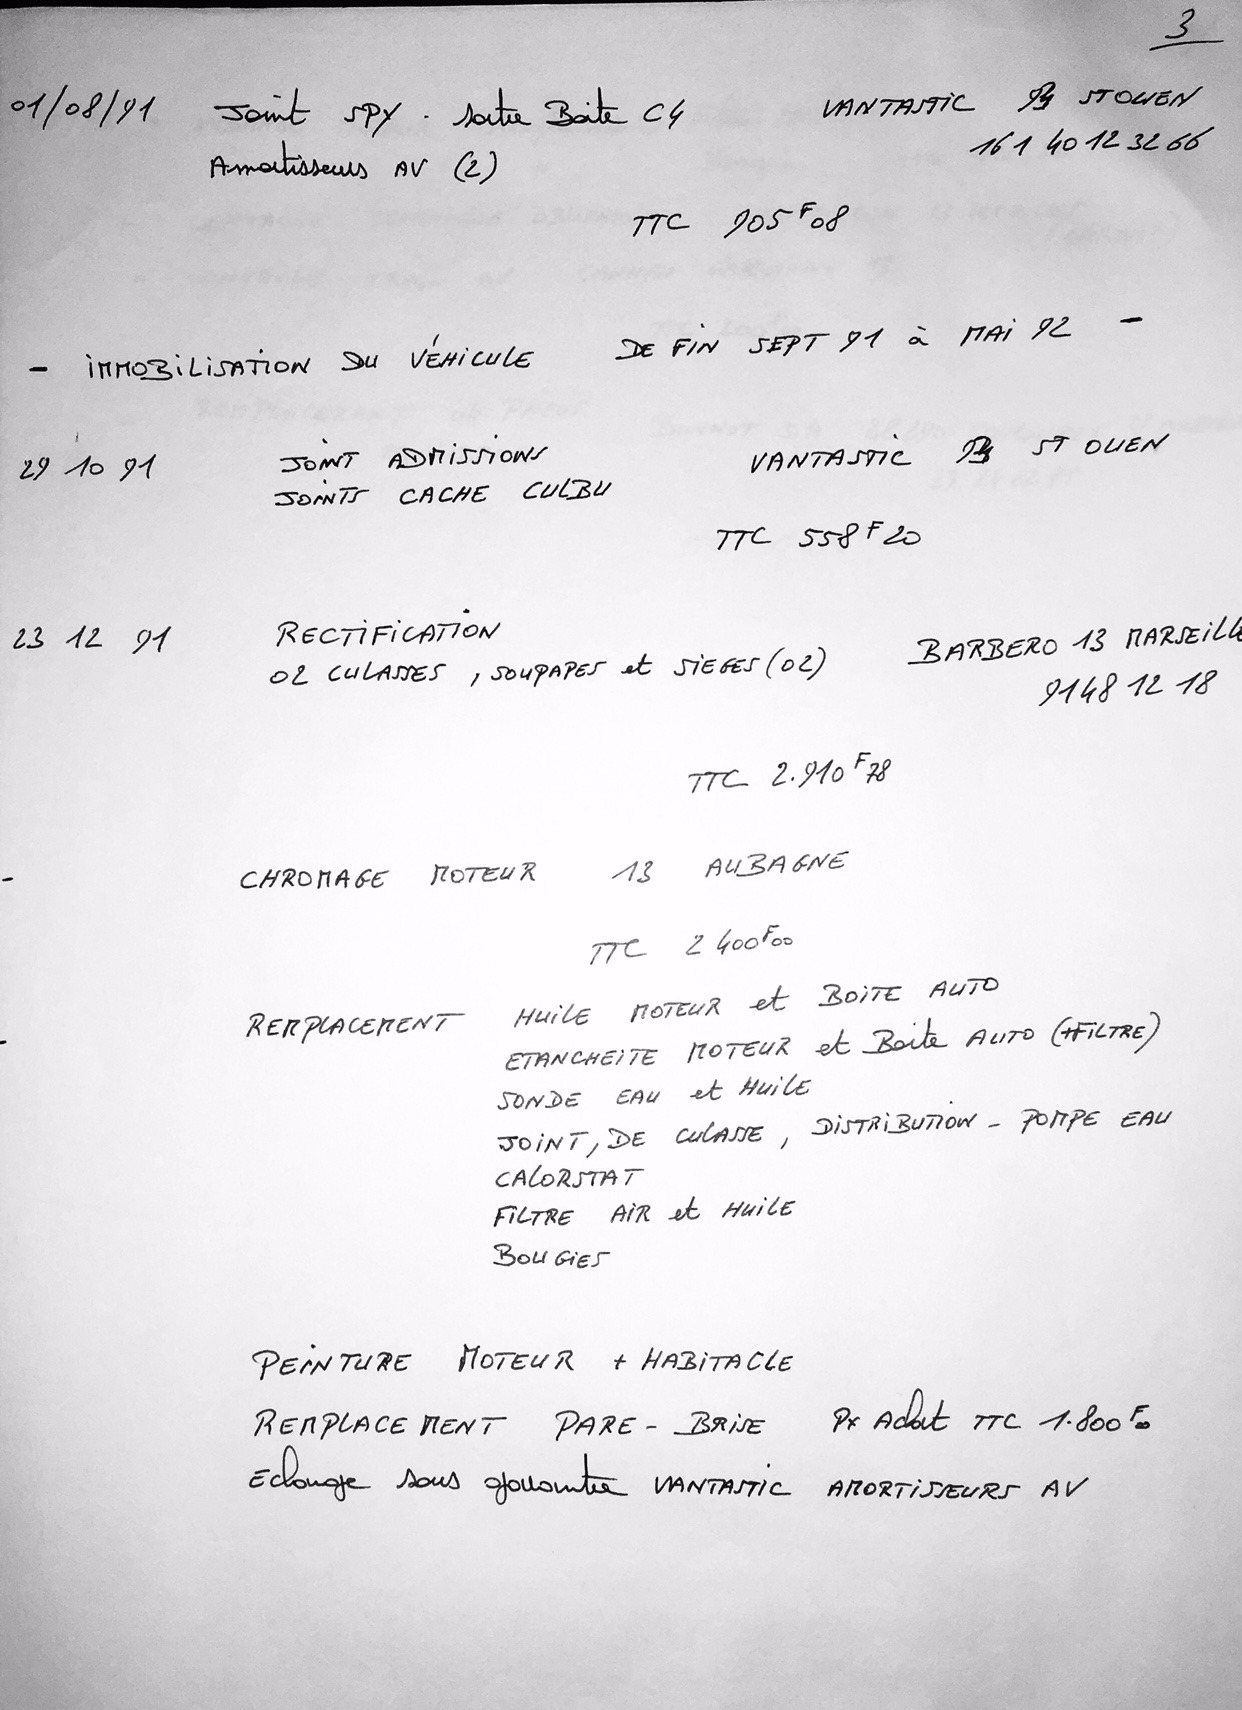 3
01/08/91 Joint SPY . sortie Boite C4 VANTASTIC 93 ST OUEN
Amortisseurs AV (2) 16 1 40 12 32 66
TTC 905 F 08
- IMMOBILISATION DU VÉHICULE DE FIN SEPT 91 à MAI 92 -
29 10 91 JOINT ADMISSIONS VANTASTIC 93 ST OUEN
JOINTS CACHE CULBU
TTC 558 F 20
23 12 91 RECTIFICATION BARBERO 13 MARSEILLE
02 CULASSES , SOUPAPES et SIEGES (02) 91 48 12 18
TTC 2.910 F 78
- CHROMAGE MOTEUR 13 AUBAGNE
TTC 2 400 F 00
- REMPLACEMENT HUILE MOTEUR et BOITE AUTO
ETANCHEITE MOTEUR et Boite AUTO (+FILTRE)
SONDE EAU et HUILE
JOINT, DE CULASSE , DISTRIBUTION - POMPE EAU
CALORSTAT
FILTRE AIR et HUILE
BOUGIES
PEINTURE MOTEUR + HABITACLE
REMPLACEMENT PARE - BRISE Px Achat TTC 1.800 F 00
Echange sous garantie VANTASTIC AMORTISSEURS AV